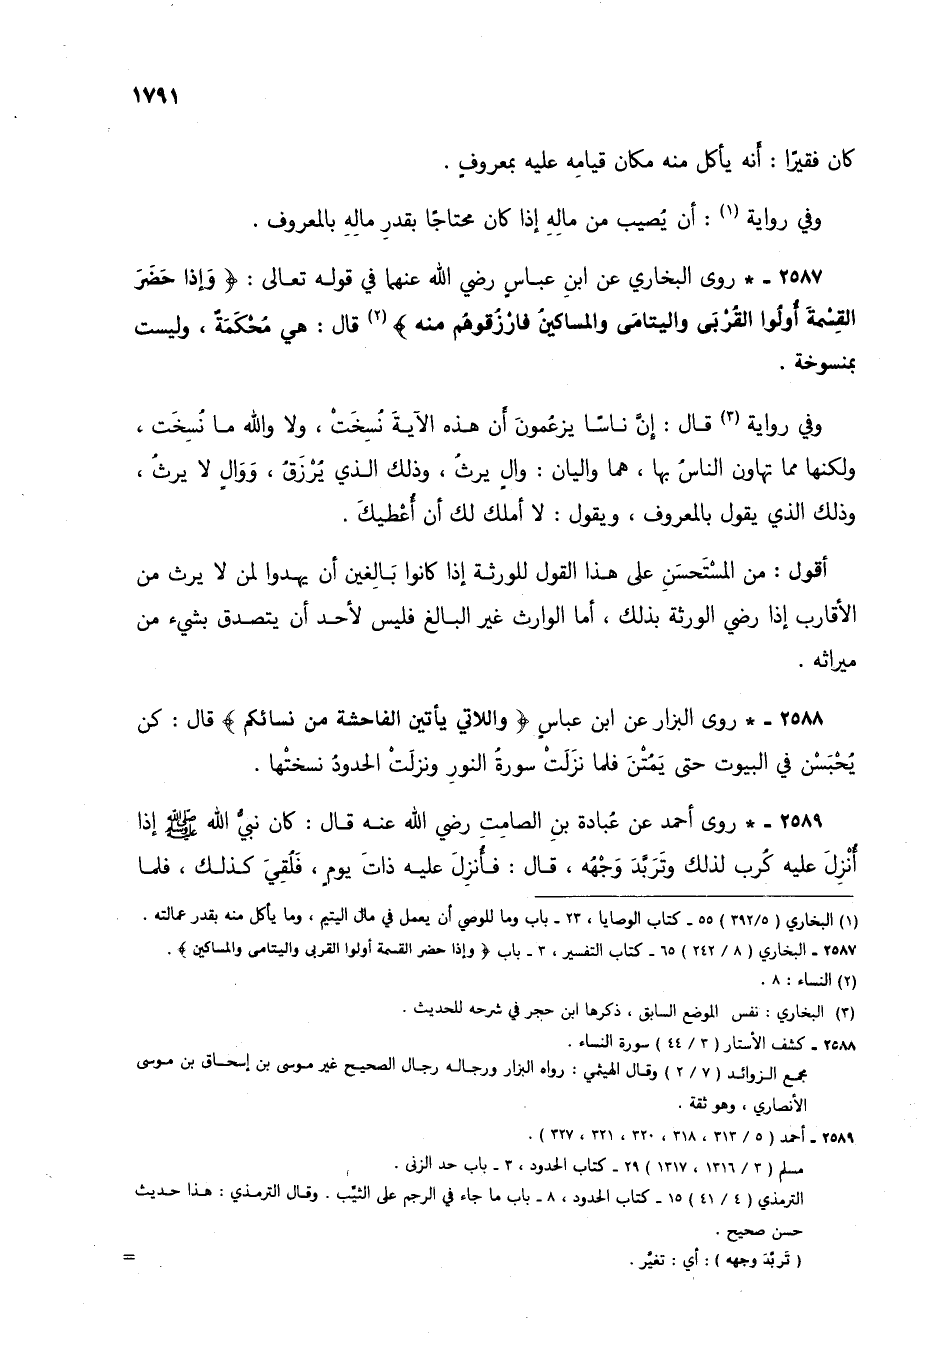 ١٧٩١
كان فقيرًا : أَنه يأكل منه مكان قيامِه عليه بمعروفٍ .
وفي رواية (١) : أن يُصيب من مالِهِ إذا كان محتاجًا بقدرِ مالِهِ بالمعروف .
٢٥٨٧ ـ * روى البخاري عن ابنِ عبـاسٍ رضي الله عنهما في قوله تعـالى : ﴿ وَإذا حَضَرَ
القِسْمةَ أُولُوا القُرْبَى واليتامَى والمساكينُ فارْزُقوهُم منه ﴾ (٢) قال : هي مُحْكَمَةٌ ، وليست
بمنسوخة .
وفي رواية (٣) قـال : إنَّ نـاسًـا يزعُمونَ أَن هـذه الآيـةَ نُسِخَتْ ، ولا والله مـا نُسِخَت ،
ولكنها مما تهاون الناسُ بها ، هما واليان : والٍ يرثُ ، وذلك الـذي يُرْزَقُ ، وَوَالٍ لا يرثُ ،
وذلك الذي يقول بالمعروف ، ويقول : لا أملك لك أن أُعْطيكَ .
أقول : من المسْتَحسَنِ على هـذا القول للورثـة إذا كانوا بَـالِغين أن يهـدوا لمن لا يرث من
الأقارب إذا رضي الورثة بذلك ، أما الوارث غير البـالغ فليس لأحـد أن يتصـدق بشيء من
ميراثه .
٢٥٨٨ ـ * روى البزار عن ابن عباسٍ ﴿ واللاتي يأتين الفاحشة من نسائكم ﴾ قال : كن
يُحْبَسْن في البيوت حتى يَمُتْنَ فلما نزَلَتْ سورةُ النورِ ونزلَتْ الحدودُ نسختْها .
٢٥٨٩ ـ * روى أحمد عن عُبادة بنِ الصامتِ رضي الله عنـه قـال : كان نبيُّ الله ﷺ إذا
أُنْزِلَ عليه كُرب لذلك وتَرَبَّدَ وَجْهُه ، قـال : فـأُنزِلَ عليـه ذاتَ يومٍ ، فَلُقِيَ كـذلـك ، فلمـا
(١) البخاري ( ٣٩٢/٥ ) ٥٥ ـ كتاب الوصايا ، ٢٣ ـ باب وما للوصي أن يعمل في مال اليتيم ، وما يأكل منه بقدر عمالته .
٢٥٨٧ ـ البخاري ( ٨ / ٢٤٢ ) ٦٥ ـ كتاب التفسير ، ٣ ـ باب ﴿ وإذا حضر القسمة أولوا القربى واليتامى والمساكين ﴾ .
(٢) النساء : ٨ .
(٣) البخاري : نفس الموضع السابق ، ذكرها ابن حجر في شرحه للحديث .
٢٥٨٨ ـ كشف الأستار ( ٣ / ٤٤ ) سورة النساء .
مجمع الـزوائـد ( ٧ / ٢ ) وقـال الهيثمي : رواه البزار ورجالـه رجـال الصحيح غير موسى بن إسحـاق بن موسى
الأنصاري ، وهو ثقة .
٢٥٨٩ ـ أحمد ( ٥ / ٣١٣ ، ٣١٨ ، ٣٢٠ ، ٣٢١ ، ٣٢٧ ) .
مسلم ( ٣ / ١٣١٦ ، ١٣١٧ ) ٢٩ ـ كتاب الحدود ، ٣ ـ باب حد الزنى .
الترمذي ( ٤ / ٤١ ) ١٥ ـ كتاب الحدود ، ٨ ـ باب ما جاء في الرجم على الثيِّب . وقال الترمذي : هـذا حـديث
حسن صحيح .
( تَربَّدَ وجهه ) : أي : تغيَّر .
=